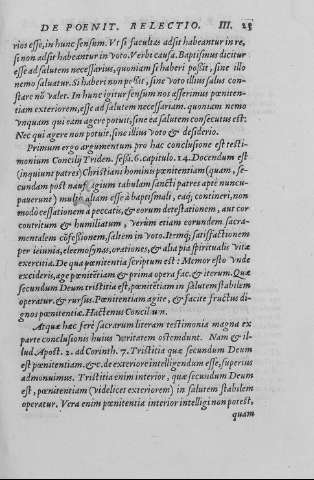 DE POENIT. RELECTIO. III. 25
rios esse, in hunc sensum. Vt si facultas adsit habeantur in re,
si non adsit habeantur in voto. Verbi causa. Baptismus dicitur
esse ad salutem necessarius, quoniam si haberi possit, sine illo
nemo saluatur. Si haberi non possit, sine voto illius salus con-
stare nõ valet. In hunc igitur sensum nos asserimus pœniten-
tiam exteriorem, esse ad salutem necessariam. quoniam nemo
vnquam qui eam agere potuit, sine ea salutem consecutus est:
Nec qui agere non potuit, sine illius voto & desiderio.
Primum ergo argumentum pro hac conclusione est testi-
monium Concilij Triden. sess. 6. capitulo. 14. Docendum est
(inquiunt patres) Christiani hominis pœnitentiam (quam, se-
cundam post naufragium tabulam sancti patres aptè nuncu-
pauerunt) multo aliam esse à baptismali, eaq́; contineri, non
modò cessationem à peccatis, & eorum detestationem, aut cor
contritum & humiliatum, verùm etiam eorundem sacra-
mentalem cõfessionem, saltem in voto. Itemq́; satisfactionem
per ieiunia, eleemosynas, orationes, & alia pia spiritualis vitæ
exercitia. De qua pœnitentia scriptum est: Memor esto vnde
excideris, age pœnitẽtiam & prima opera fac. & iterum. Quæ
secundum Deum tristitia est, pœnitẽtiam in salutem stabilem
operatur. & rursus. Pœnitentiam agite, & facite fructus di-
gnos pœnitentiæ. Hactenus Concilium.
Atque hæc ferè sacrarum literam testimonia magna ex
parte conclusionis huius veritatem ostendunt. Nam & il-
lud Apost. 2. ad Corinth. 7. Tristitia quæ secundum Deum
est pœnitentiam. &c. de exteriori intelligendum esse, superius
admonuimus. Tristitia enim interior, quæ secundum Deum
est, pœnitentiam (videlicet exteriorem) in salutem stabilem
operatur. Vera enim pœnitentia interior intelligi non potest,
quam